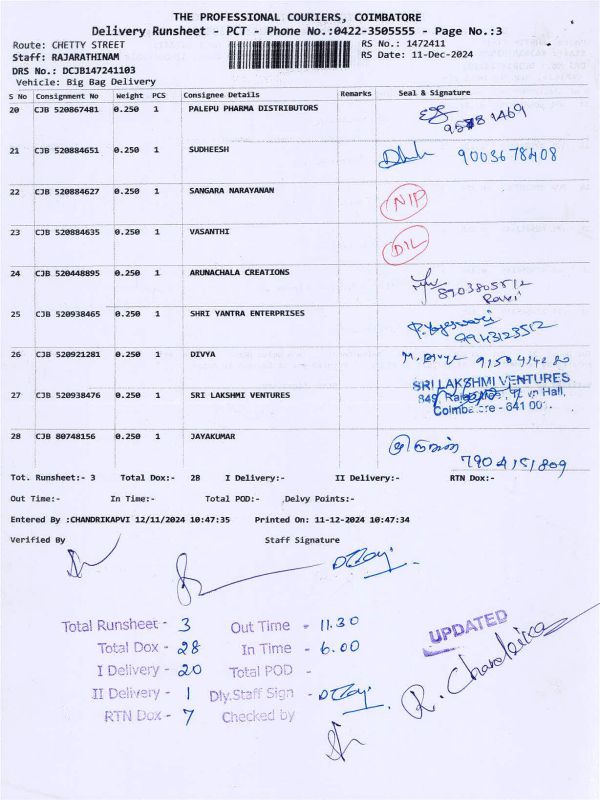 THE PROFESSIONAL COURIERS, COIMBATORE
Delivery Runsheet - PCT - Phone No.:0422-3505555 - Page No.:3
Route: CHETTY STREET RS No.: 1472411
Staff: RAJARATHINAM RS Date: 11-Dec-2024
DRS No.: DCJB147241103
Vehicle: Big Bag Delivery
S No Consignment No Weight PCS Consignee Details Remarks Seal & Signature
20 CJB 520867481 0.250 1 PALEPU PHARMA DISTRIBUTORS
21 CJB 520884651 0.250 1 SUDHEESH 9003678408
22 CJB 520884627 0.250 1 SANGARA NARAYANAN NIP
23 CJB 520884635 0.250 1 VASANTHI DIL
24 CJB 520448895 0.250 1 ARUNACHALA CREATIONS 8903805512
Ravi
25 CJB 520938465 0.250 1 SHRI YANTRA ENTERPRISES 9943123512
26 CJB 520921281 0.250 1 DIVYA M. Divya
27 CJB 520938476 0.250 1 SRI LAKSHMI VENTURES SRI LAKSHMI VENTURES
28 CJB 80748156 0.250 1 JAYAKUMAR 7904151809
Tot. Runsheet:- 3 Total Dox:- 28 I Delivery:- II Delivery:- RTN Dox:-
Out Time:- In Time:- Total POD:- Delvy Points:-
Entered By :CHANDRIKAPVI 12/11/2024 10:47:35 Printed On: 11-12-2024 10:47:34
Verified By Staff Signature
Total Runsheet - 3 Out Time - 11.30
Total Dox - 28 In Time - 6.00
I Delivery - 20 Total POD -
II Delivery - 1 Dly.Staff Sign -
RTN Dox - 7 Checked by
UPDATED